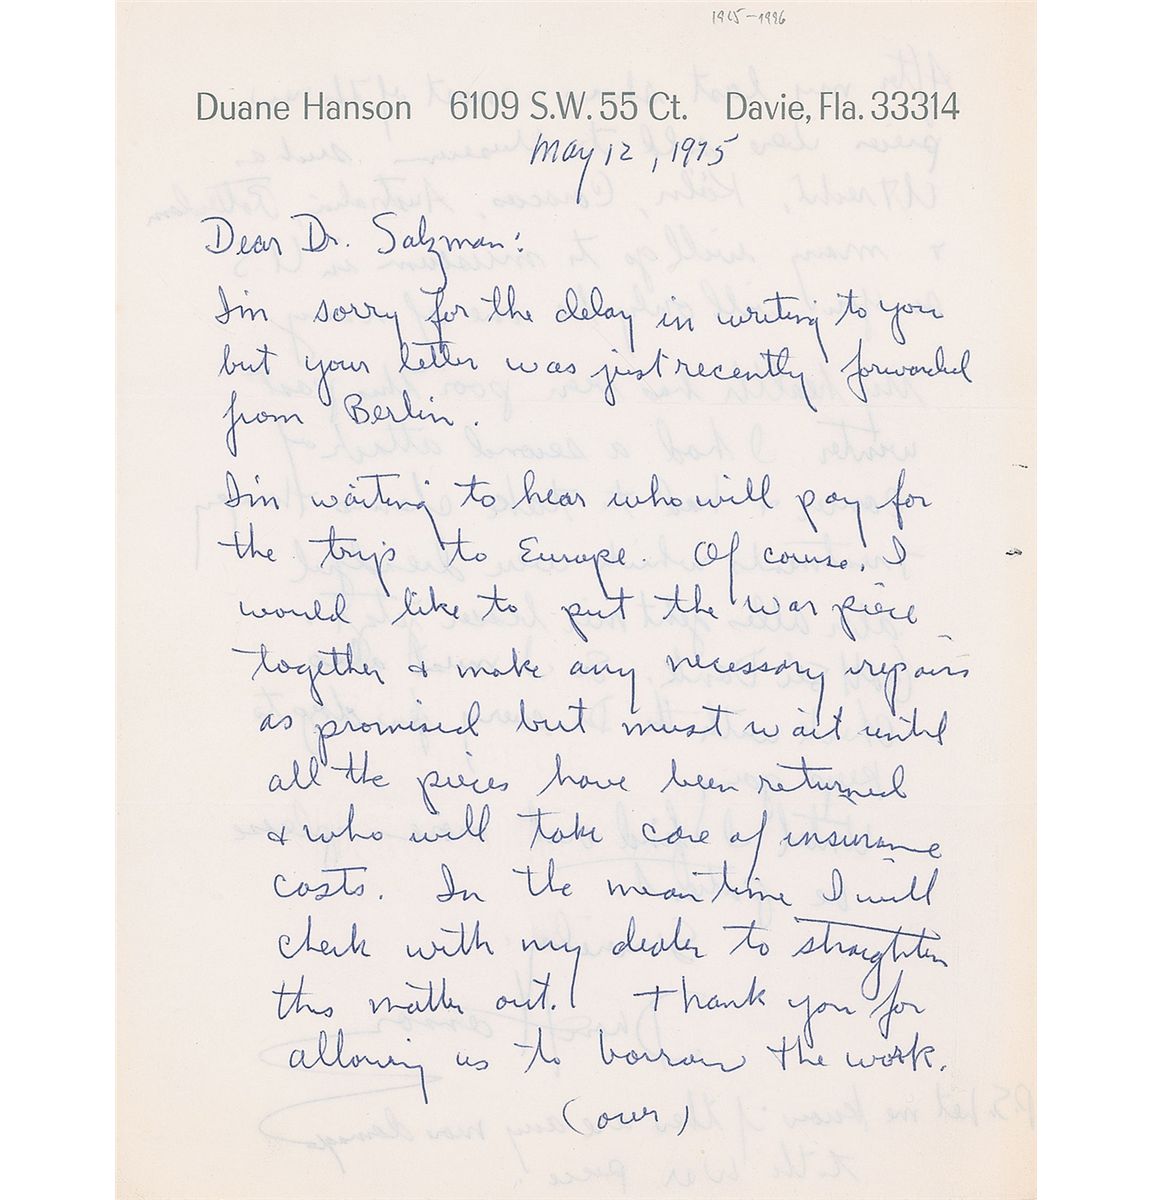 1925-1996
Duane Hanson 6109 S.W. 55 Ct. Davie, Fla. 33314
May 12, 1975
Dear Dr. Salzman:
I'm sorry for the delay in writing to you
but your letter was just recently forwarded
from Berlin.
I'm waiting to hear who will pay for
the trip to Europe. Of course, I
would like to put the war piece
together & make any necessary repairs
as promised but must wait until
all the pieces have been returned
& who will take care of insurance
costs. In the meantime I will
check with my dealer to straighten
this matter out. Thank you for
allowing us to borrow the work.
(over)